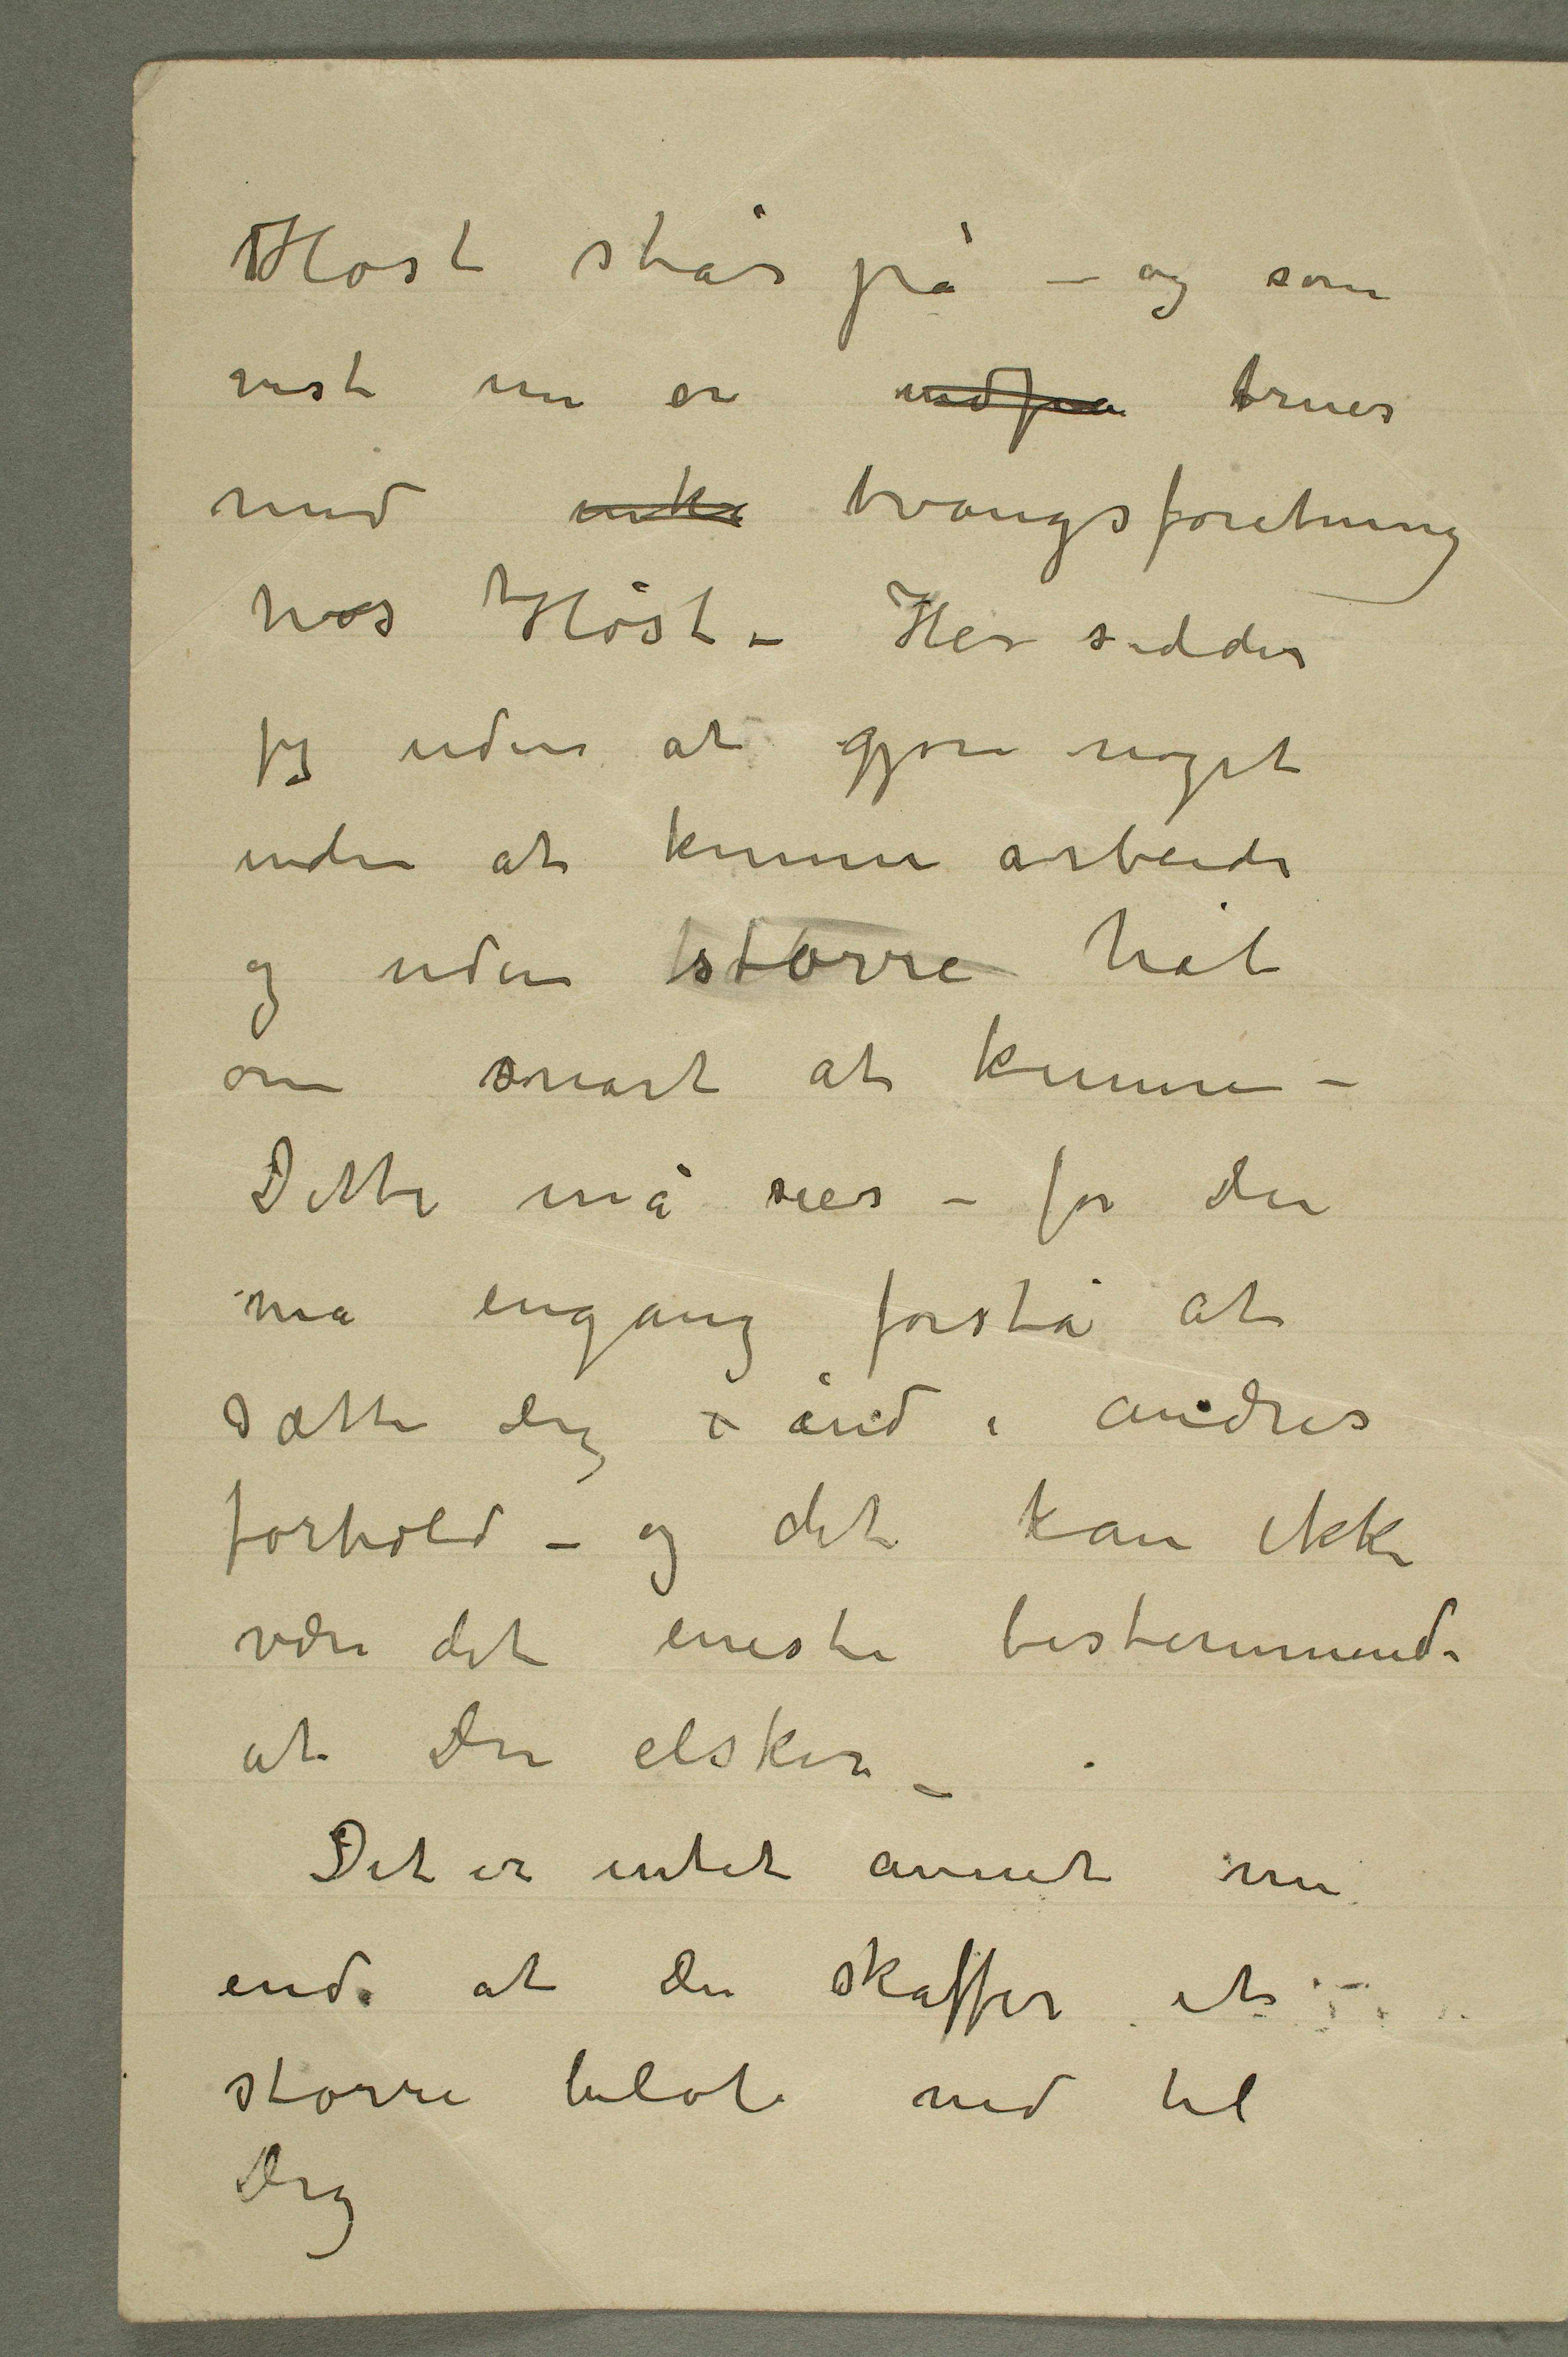 Høst står på – og som
vist nu er trues
med tvangsforetning
hos Høst – Her sidder
jeg uden at gjøre noget
uden at kunne arbeide
og uden større håb
om snart at kunne –
Dette må sies – for du
må engang forstå at
sætte dig i ånd i andres
forhold – og det kan ikke
være det eneste bestemmende
at du elsker –
Det er intet annet nu
end at du skaffer et
større beløb ned til
Dig